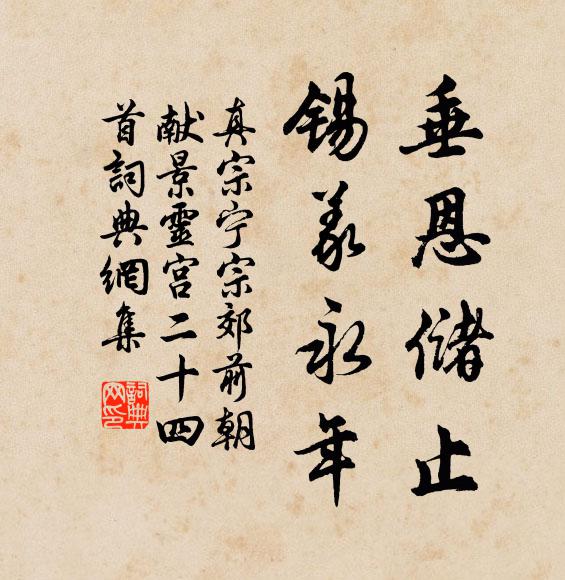 垂恩储止
锡羡永年
真宗宁宗郊前朝
献景灵宫二十四
首词典网集
词典
网印